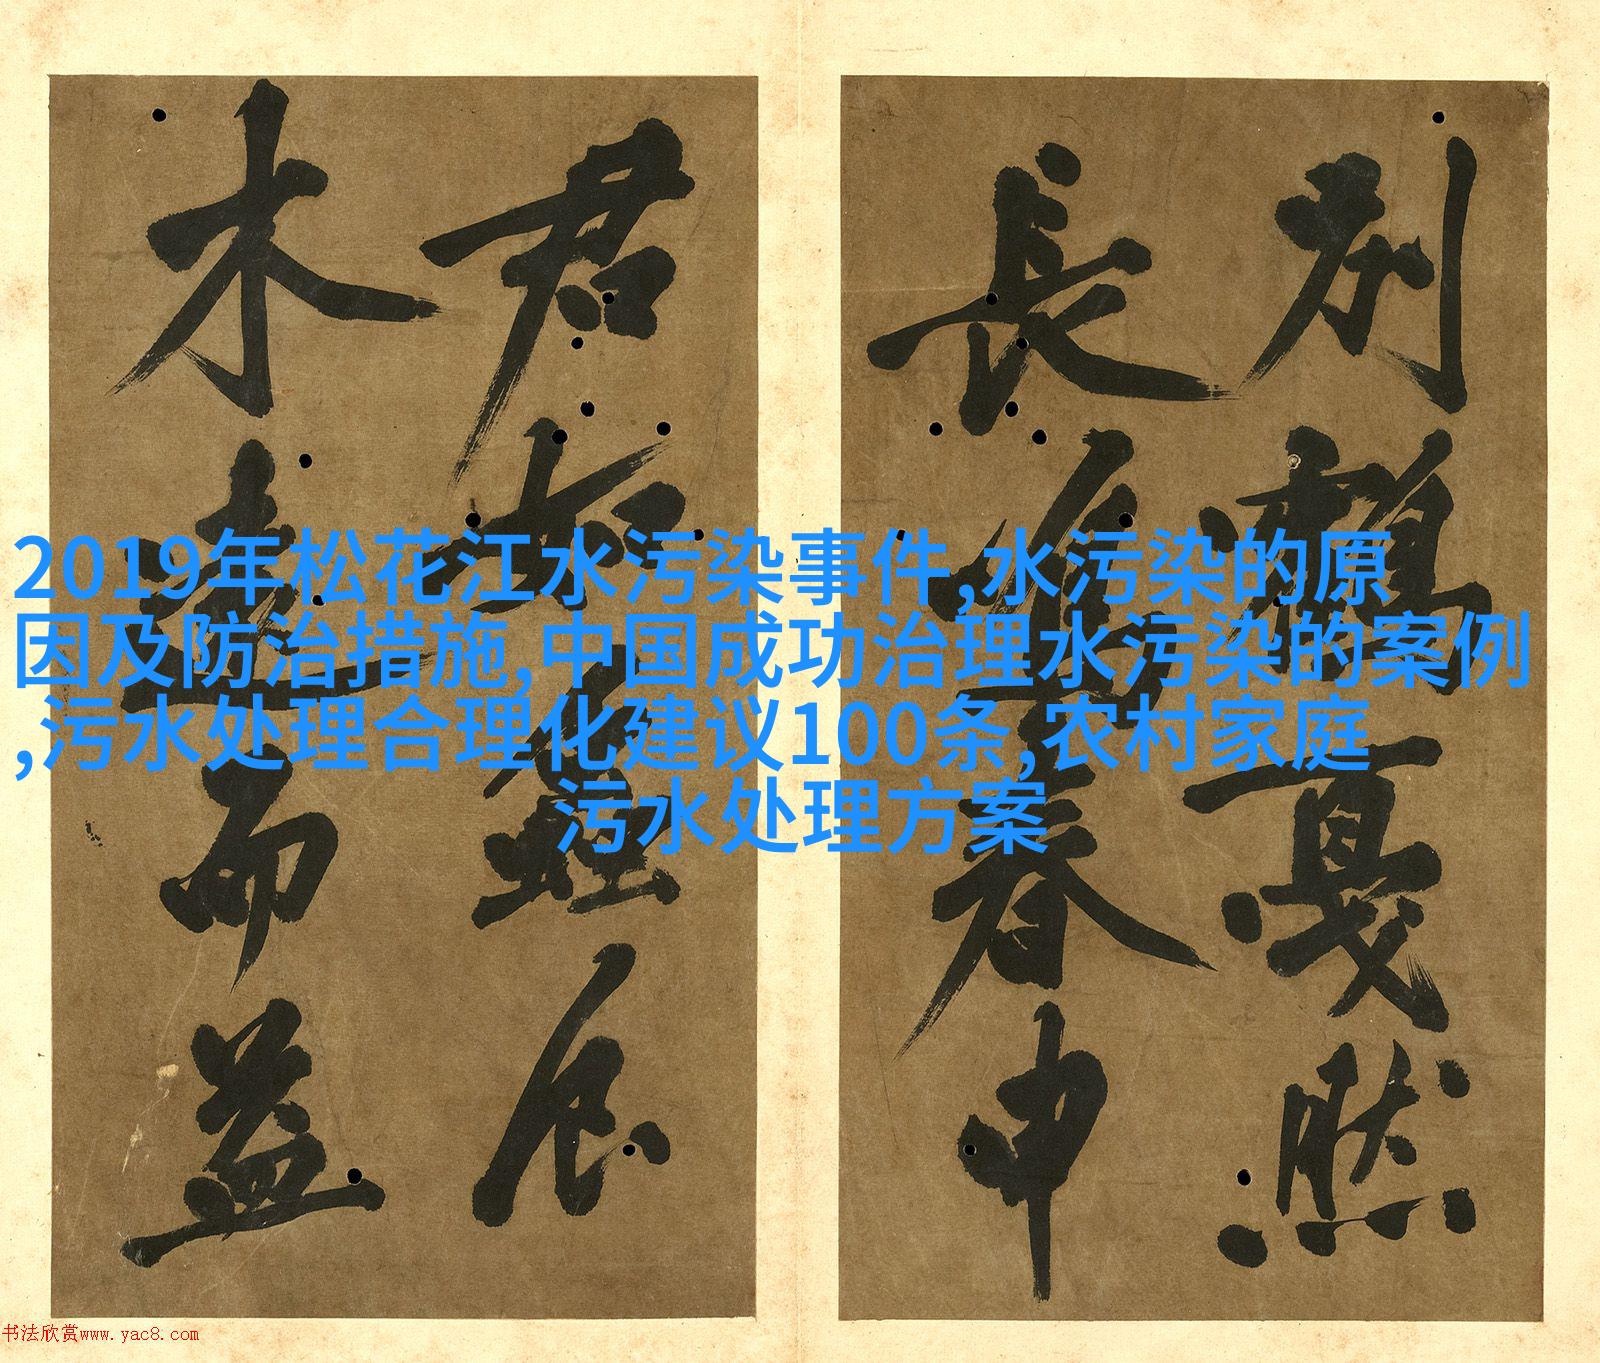 别鶴戛然
長
春申
君
屈
木
而益
2019年松花江水污染事件,水污染的原
因及防治措施,中国成功治理水污染的案例
,污水处理合理化建议100条,农村家庭
污水处理方案
书法欣赏www.yac8.com